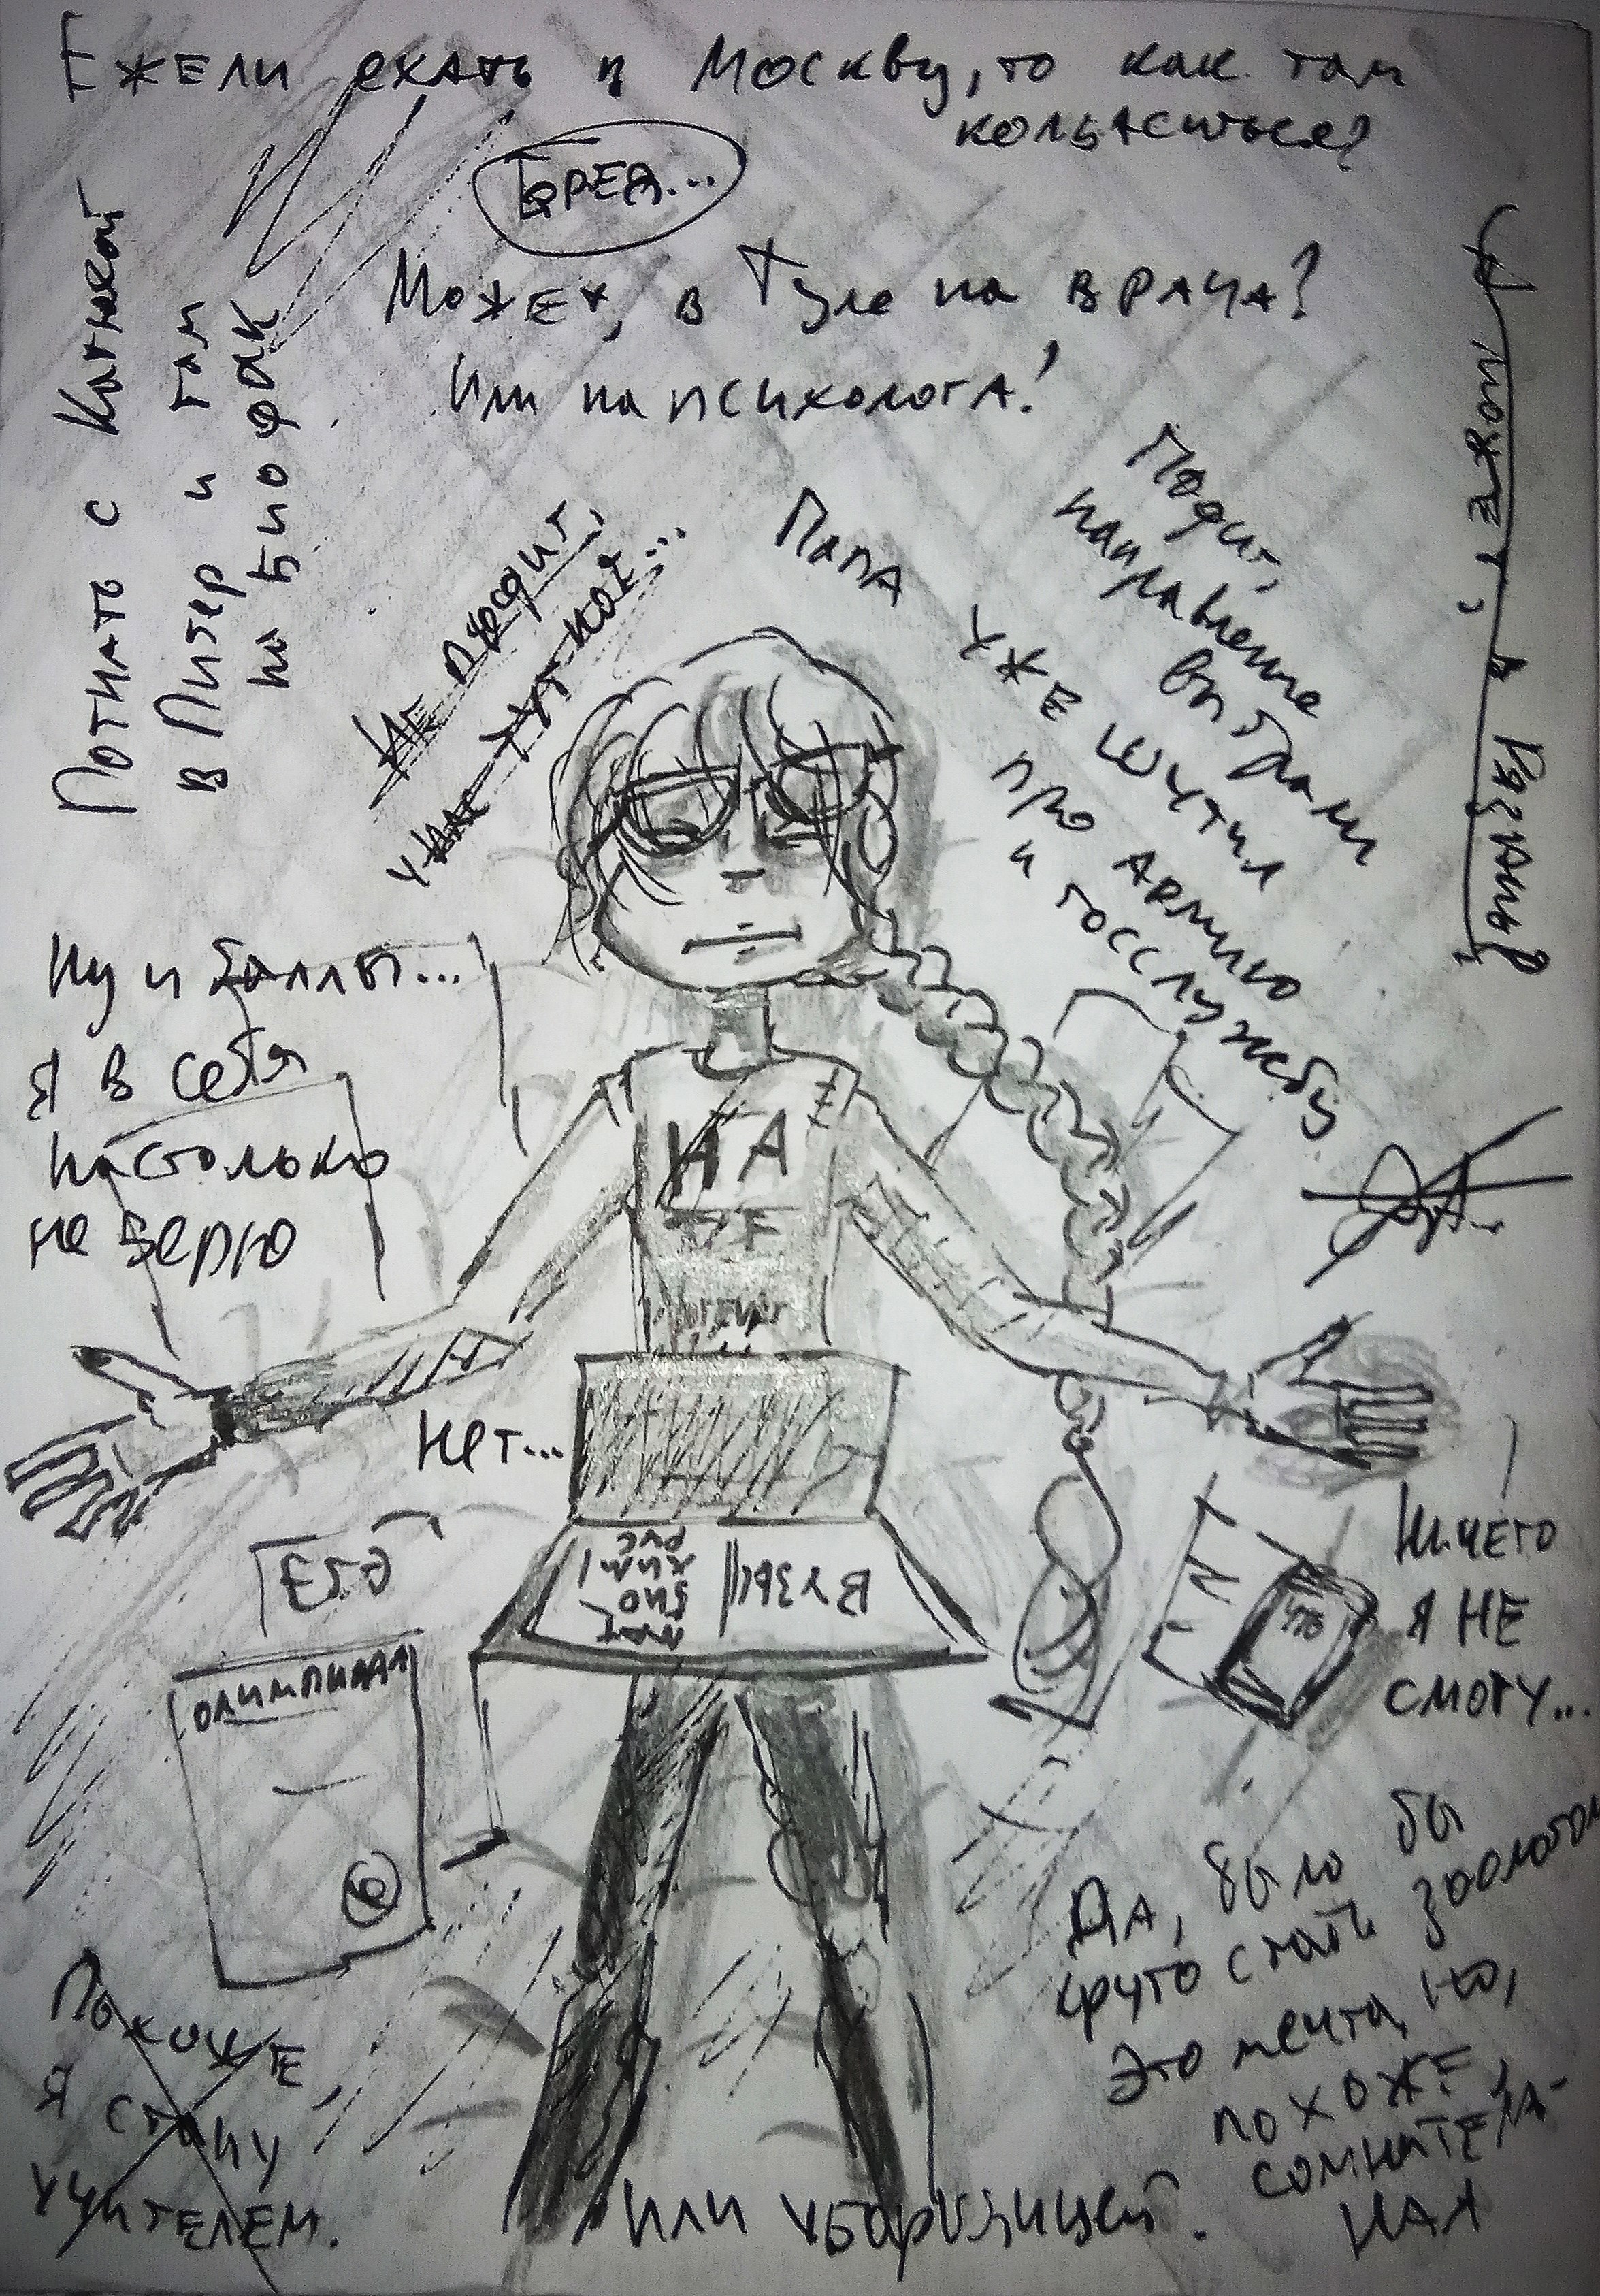 Ежели ехать в Москву, то как там
колбаситься?
Бред...
Может, в Туле на врача?
Или на психолога!
Погнать с Катюхой
в Питер и там
на биофак
А может, в Рязань?
Не просрит,
у нас тут кот...
Папа уже шутил
про армию
и госслужбу
Подит,
направление
выбрали
Ну и баллы...
Я в себя
настолько
не верю
НА
Нет...
ЕГЭ
рус
хим
био
мат
ВУЗЫ
ОЛИМПИАДА
Ничего
я не
смогу...
Да, было бы
круто стать зоологом
Это мечта, но,
похоже,
сомнитель-
ная
Похоже,
я стану
учителем.
Или уборщицей.